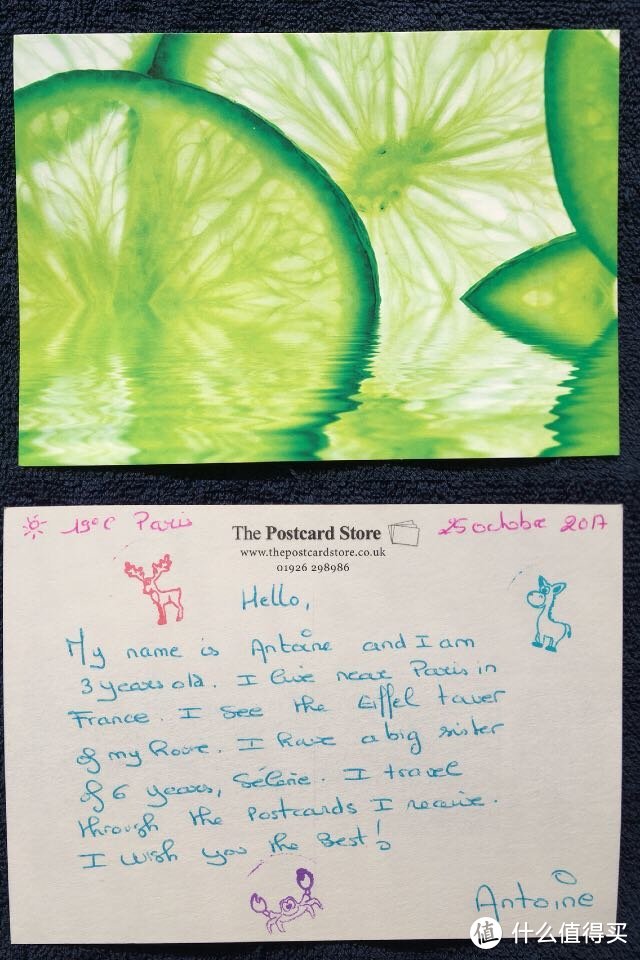 19°C Paris
The Postcard Store
25 octobre 2017
www.thepostcardstore.co.uk
01926 298986
Hello,
My name is Antoine and I am
3 years old. I live near Paris in
France. I see the Eiffel tower
of my house. I have a big sister
of 6 years, Sélène. I travel
through the postcards I receive.
I wish you the Best!
Antoine
值 什么值得买